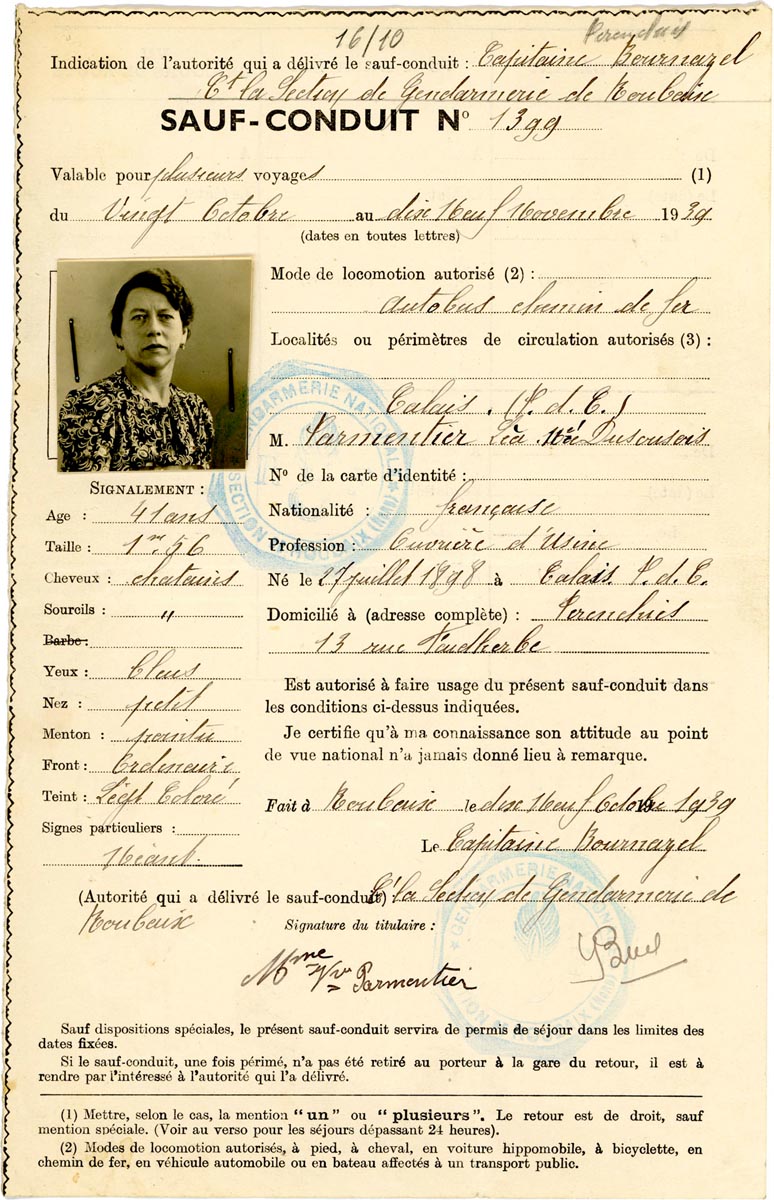 16/10
Perenchies
Indication de l'autorité qui a délivré le sauf-conduit : Capitaine Bournazel
Ct la Section de Gendarmerie de Roubaix
SAUF-CONDUIT No 1399
Valable pour plusieurs voyages (1)
du Vingt Octobre au dix Neuf Novembre 1939
(dates en toutes lettres)
Mode de locomotion autorisé (2) :
autobus chemin de fer
Localités ou périmètres de circulation autorisés (3) :
Calais. (P. d. C.)
M. Parmentier Léa Née Dusousois
No de la carte d'identité :
Nationalité : française
Profession : Ouvrière d'Usine
Né le 27 juillet 1898 à Calais P. d. C.
Domicilié à (adresse complète) : Perenchies
13 rue Faidherbe
SIGNALEMENT :
Age : 41 ans
Taille : 1m 56
Cheveux : chatains
Sourcils : "
Barbe :
Yeux : bleus
Nez : petit
Menton : pointu
Front : Ordinaire
Teint : Légt Coloré
Signes particuliers :
Néant.
Est autorisé à faire usage du présent sauf-conduit dans
les conditions ci-dessus indiquées.
Je certifie qu'à ma connaissance son attitude au point
de vue national n'a jamais donné lieu à remarque.
Fait à Roubaix le dix Neuf Octobre 1939
Le Capitaine Bournazel
(Autorité qui a délivré le sauf-conduit) Ct la Section de Gendarmerie de
Roubaix
Signature du titulaire :
Mme Vve Parmentier
GENDARMERIE NATIONALE
SECTION DE ROUBAIX (Nord)
GENDARMERIE NATIONALE
SECTION DE ROUBAIX (Nord)
Sauf dispositions spéciales, le présent sauf-conduit servira de permis de séjour dans les limites des
dates fixées.
Si le sauf-conduit, une fois périmé, n'a pas été retiré au porteur à la gare du retour, il est à
rendre par l'intéressé à l'autorité qui l'a délivré.
(1) Mettre, selon le cas, la mention "un" ou "plusieurs". Le retour est de droit, sauf
mention spéciale. (Voir au verso pour les séjours dépassant 24 heures).
(2) Modes de locomotion autorisés, à pied, à cheval, en voiture hippomobile, à bicyclette, en
chemin de fer, en véhicule automobile ou en bateau affectés à un transport public.